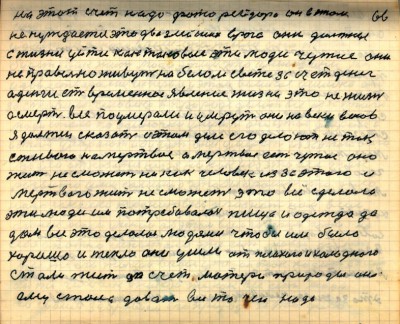 на этот счет надо он в этом 66
не нуждается это два злейших врага они должны
с жизни уйти как таковые эти люди чужие они
не правельно живут на белом свете за счет денег
а деньги ет временное явление жизни это не жизнь
а смерть. все поумерали и умрут они на веки веков
я должен сказать о этом деле его делают не так
живого на мертвое а мертвое ет чужое оно
жит не сможет никак человек из за этого и
мертвого жит не сможет это всё сделала
эти люди им потребавалася пища и одежда да
дом все это делалося людями чтобы им было
хорошо и тепло они ушли от плохого и холодного
стали жит за счет матери природы она
ему стала давать все то чего надо